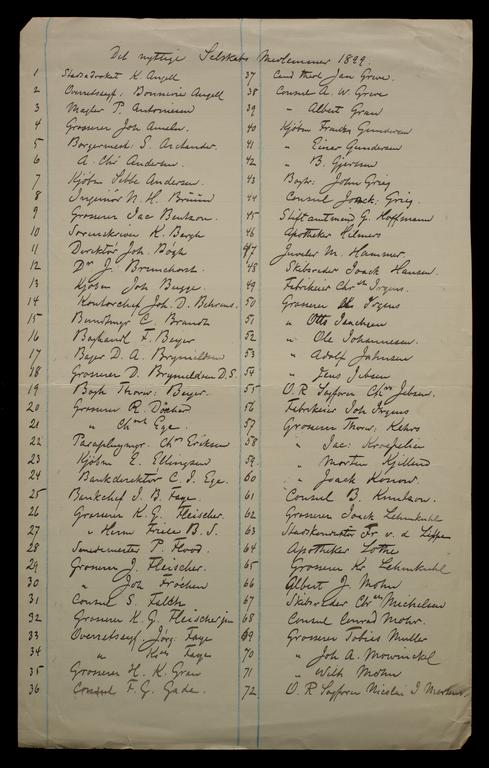 Det nyttige Selskabs Medlemmer 1899.
1 Stadsadvokat K. Angell
2 Overretssagf: Bonnevie Angell
3 Mægler P. Antonisen
4 Grosserer Joh Ameln.
5 Borgermest: S. Archander.
6 A. Chr Andersen.
7 Kjøbm Sebbe Andersen.
8 Ingeniör N. H. Bruun
9 Grosserer Jac Bentzon.
10 Sorenskriver K. Bergh
11 Direktör Joh. Bögh
12 Dr J. Brunchorst.
13 Kjöbm Joh Bugge.
14 Kontorchef Joh. D. Behrens.
15 C. Brandt
16 Boghandl F. Beyer
17 Bager D. A. Brynildsen
18 Grosserer D. Brynildsen D.S.
19 Bogh Thorv. Beyer.
20 Grosserer R.
21 " Chart Ege.
22 Paraplymgr. Chr Eriksen
23 Kjöbm E. Ellingsen
24 Bankdirektör C. I. Ege.
25 Bankchef J. B. Faye.
26 Grosserer K. G. Fleischer.
27 " Herm Friele B. S.
28 P. Flood.
29 Grosserer J. Fleischer.
30 " Joh Fröchen
31 Consul S. Falck
32 Grosserer K. G. Fleischer jun
33 Overretssagf. Jörg. Faye
34 " Faye
35 Grosserer H. K. Gran
36 Consul F. G. Gade.
37 Cand theol Jan Greve.
38 Consul A. W Greve
39 " Albert Gran
40 Kjöbm Frantz Gundersen
41 " Einar Gundersen
42 " B. Gjertsen
43 Bogtr: John Grieg
44 Consul Joach. Grieg.
45 Stiftamtmand G. Hoffmann
46 Apotheker Hilmers
47 Juveler M. Hammer.
48 Skibsreder Joach Hansen.
49 Fabrikeier Chr Irgens.
50 Grosserer Irgens
51 " Otto Isachsen
52 " Ole Johannesen.
53 " Adolf Jahnsen
54 " Jens Jebsen
55 O. R Sagförer Chr Jebsen.
56 Fabrikeier Joh Irgens
57 Grosserer Thorv. Kahrs
58 " Jac. Kroepelien
59. " Morten Kjelland
60 " Joach Konow.
61 Consul B. Knudsen.
62 Grosserer Joach Lehmkuhl
63 Stadskonduktör Fr v. d Lippe
64 Apotheker Lothe
65 Grosserer Kr Lehmkuhl
66 Albert J. Mohn
67 Skibsreder Chr Michelsen
68 Consul Conrad Mohr.
69 Grosserer Tobias Müller
70 " Joh A. Mowinckel
71 " Wilh Mohn
72 O. R Sagförer Nicolai I